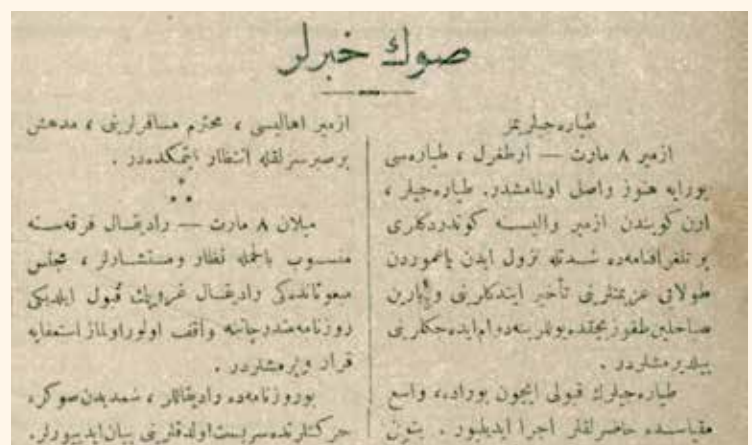 صوك خبرلر
طياره‌جيلريمز
ازمير ٨ مارت — ارطغرل ، طياره‌سى
بورايه هنوز واصل اولمامشدر. طياره‌جيلر ،
كويندن ازمير واليسنه كوندردكلرى
بر تلغرافنامه‌ده شدتله نزول ايدن ياغموردن
طولايى عزيمتلرينى تأخير ايتدكلرينى و يارين
صباحلين طقوز بچقده يوللرينه دوام ايده‌جكلرينى
بيلديرمشلردر .
طياره‌جيلرك قبولى ايچون بوراده، واسع
مقياسده حاضرلقلر اجرا ايديليور . بتون
ازمير اهاليسى ، محترم مسافرلرينى ، مدهش
بر صبرسزلقله انتظار ايتمكده‌در .
ميلان ٨ مارت — راديقال فرقه‌سنه
منسوب بالجمله نظار ومستشارلر ، مجلس
مبعوثانده‌كى راديقال غروپنك قبول ايلديكى
روزنامه مندرجاتنه واقف اولور اولماز استعفايه
قرار ويرمشلردر .
بو روزنامه‌ده راديقاللر ، شمديدن صوكره
حركتلرنده سربست اولدقلرينى بيان ايدييورلر.